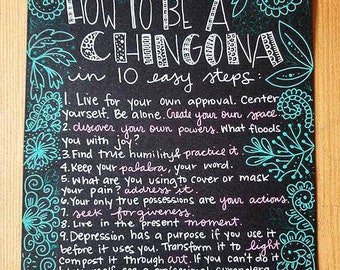 HOW TO BE A
CHINGONA
in 10 easy steps:
1. Live for your own approval. Center
yourself. Be alone. Create your own space.
2. discover your own powers. What floods
you with joy?
3. Find true humility & practice it.
4. Keep your palabra, your word.
5. What are you using to cover or mask
your pain? address it.
6. Your only true possessions are your actions.
7. seek forgiveness.
8. Live in the present moment.
9. Depression has a purpose if you use it
before it uses you. Transform it to light
compost it through art. If you can't do it